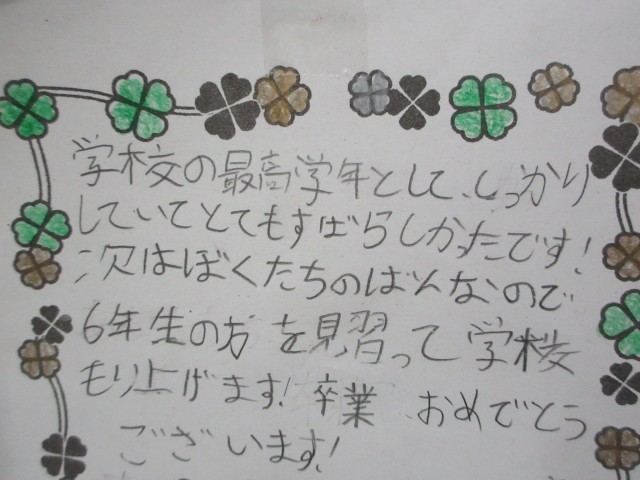 学校の最高学年として、しっかり
していてとてもすばらしかったです!
次はぼくたちのばんなので
6年生の方を見習って学校
もり上げます!卒業 おめでとう
ございます!